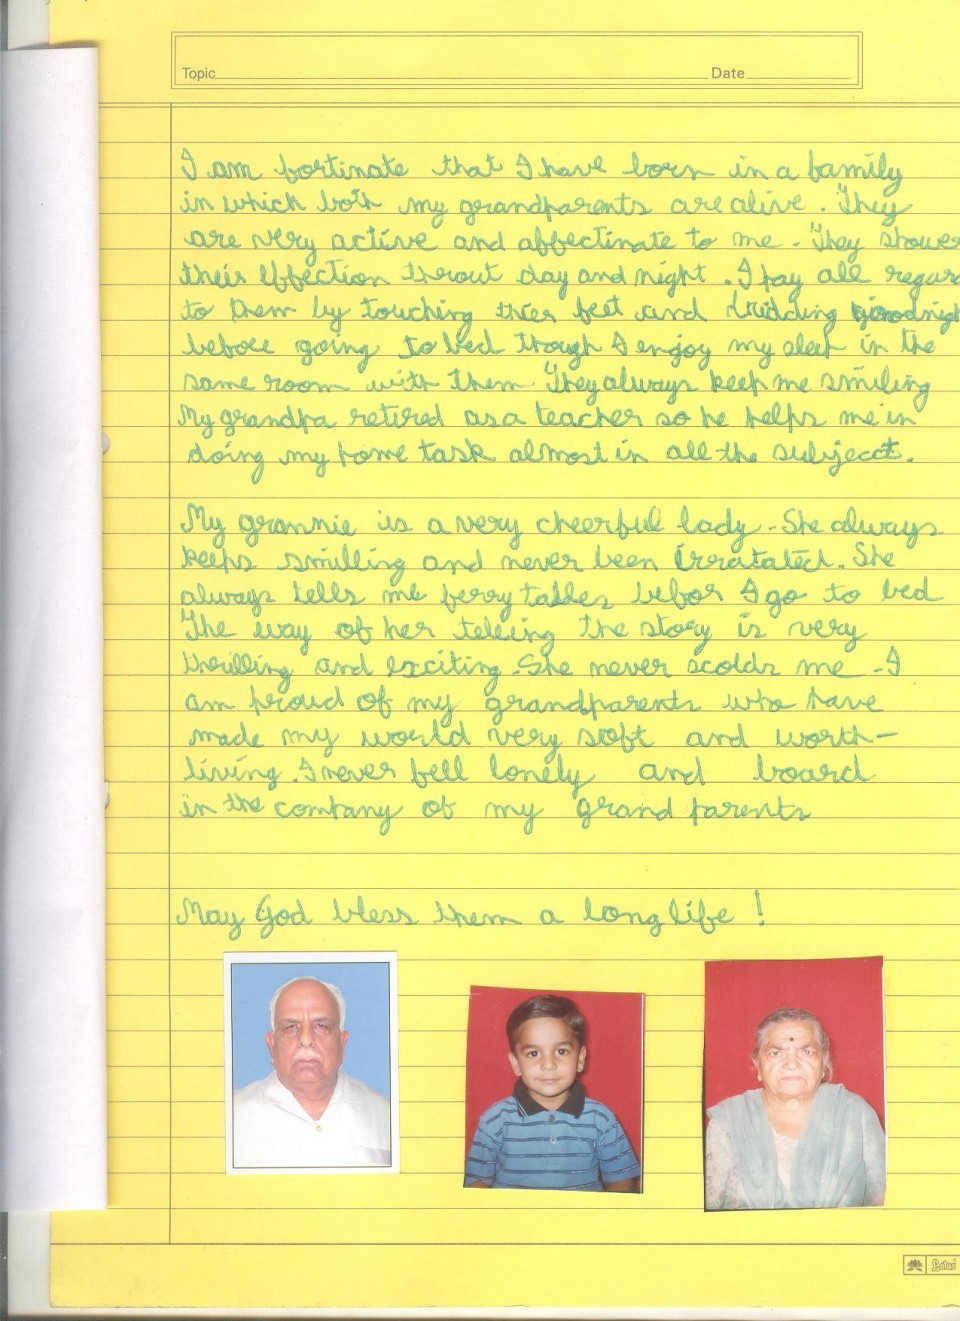 Topic Date
I am fortinate that I have born in a family
in which both my grandparents are alive. They
are very active and affectinate to me. They shower
their Effection throut day and night. I pay all regar
to them by touching thier feet and bidding goodnigh
before going to bed though I enjoy my sleep in the
same room with them They always keep me smiling
My grandpa retired as a teacher so he helps me in
doing my home task almost in all the subjecct.
My grannie is a very cheerful lady. She always
keeps smilling and never been irratated. She
always tells me ferry talles befor I go to bed
The way of her telleing the story is very
thrilling and exciting. She never scolds me. I
am proud of my grandparents who have
made my world very soft and worth-
living. I never fell lonely and board
in the company of my grand parents
May God bless them a long life !
Lotus